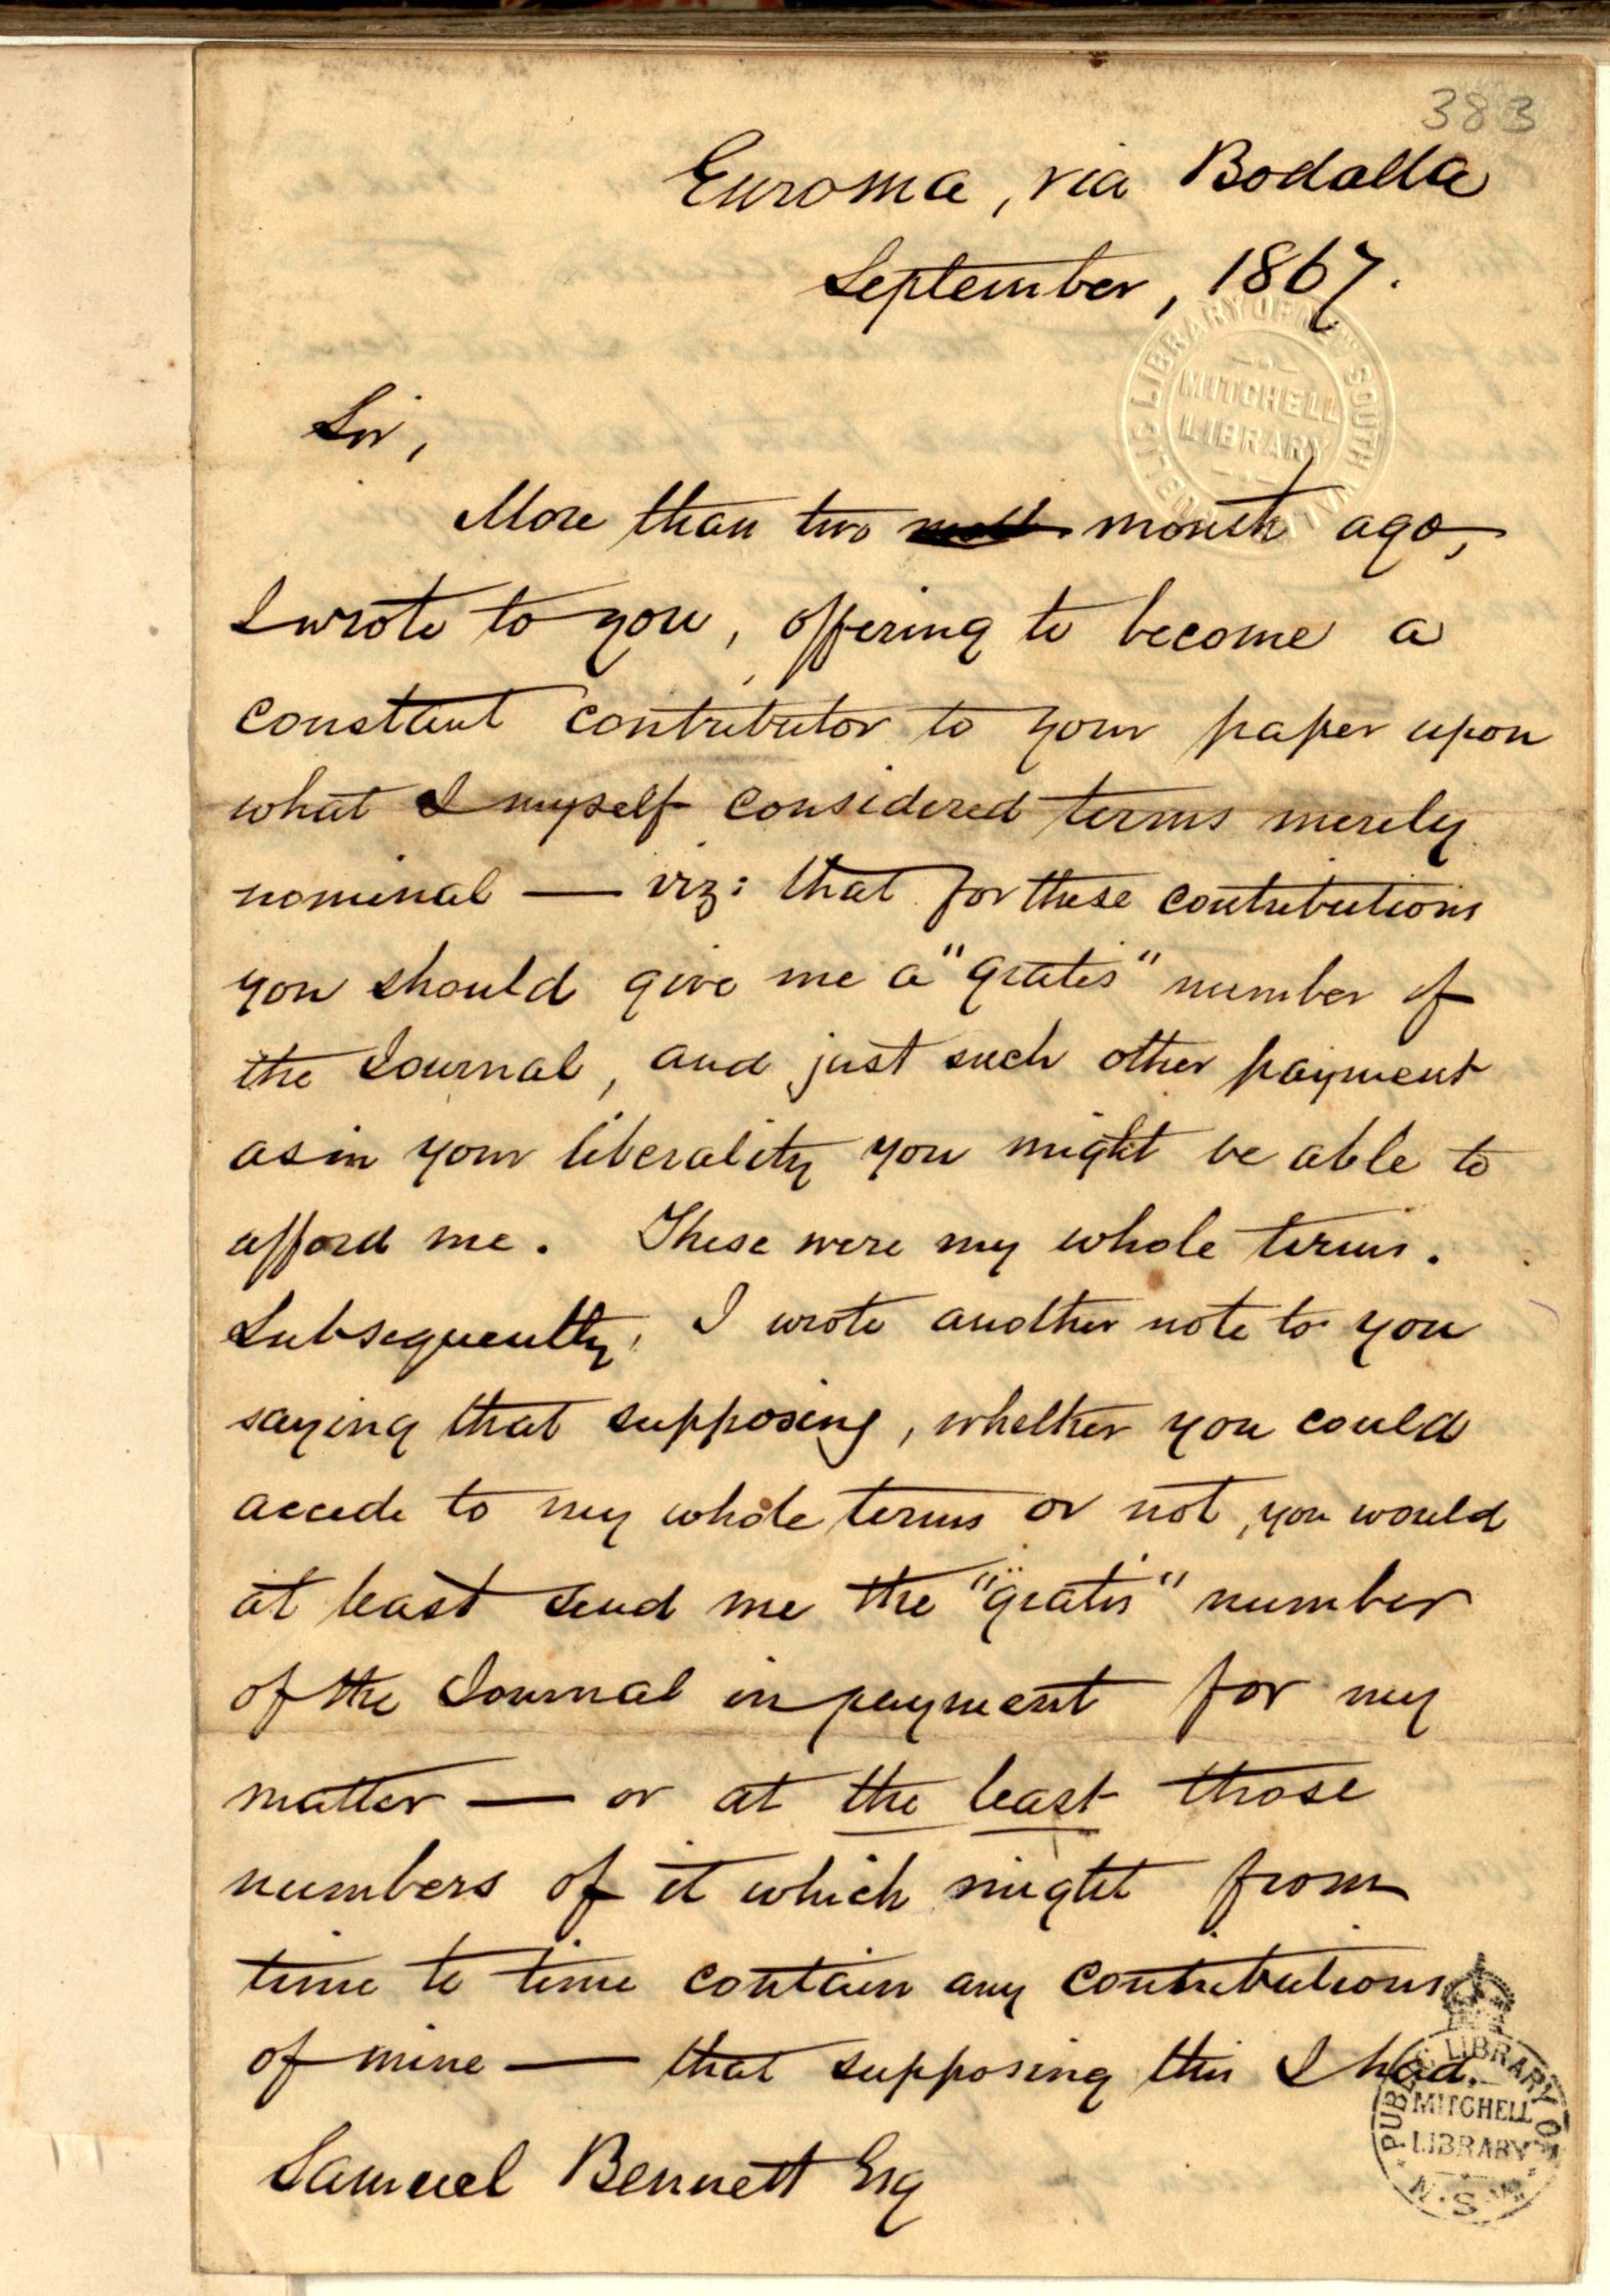 383
Euroma, via Bodalla
September, 1867.
Sir,
More than two month ago,
I wrote to you, offering to become a
constant contributor to your paper upon
what I myself considered terms merely
nominal — viz: that for these contributions
you should give me a "gratis" number of
the Journal, and just such other payment
as in your liberality you might be able to
afford me. These were my whole terms.
Subsequently, I wrote another note to you
saying that supposing, whether you could
accede to my whole terms or not, you would
at least send me the "gratis" number
of the Journal in payment for my
matter — or at the least those
numbers of it which might from
time to time contain any contributions
of mine — that supposing this I had.
Samuel Bennett Esq
PUBLIC LIBRARY OF NEW SOUTH WALES
MITCHELL
LIBRARY
PUBLIC LIBRARY OF
MITCHELL
LIBRARY
N.S.W.